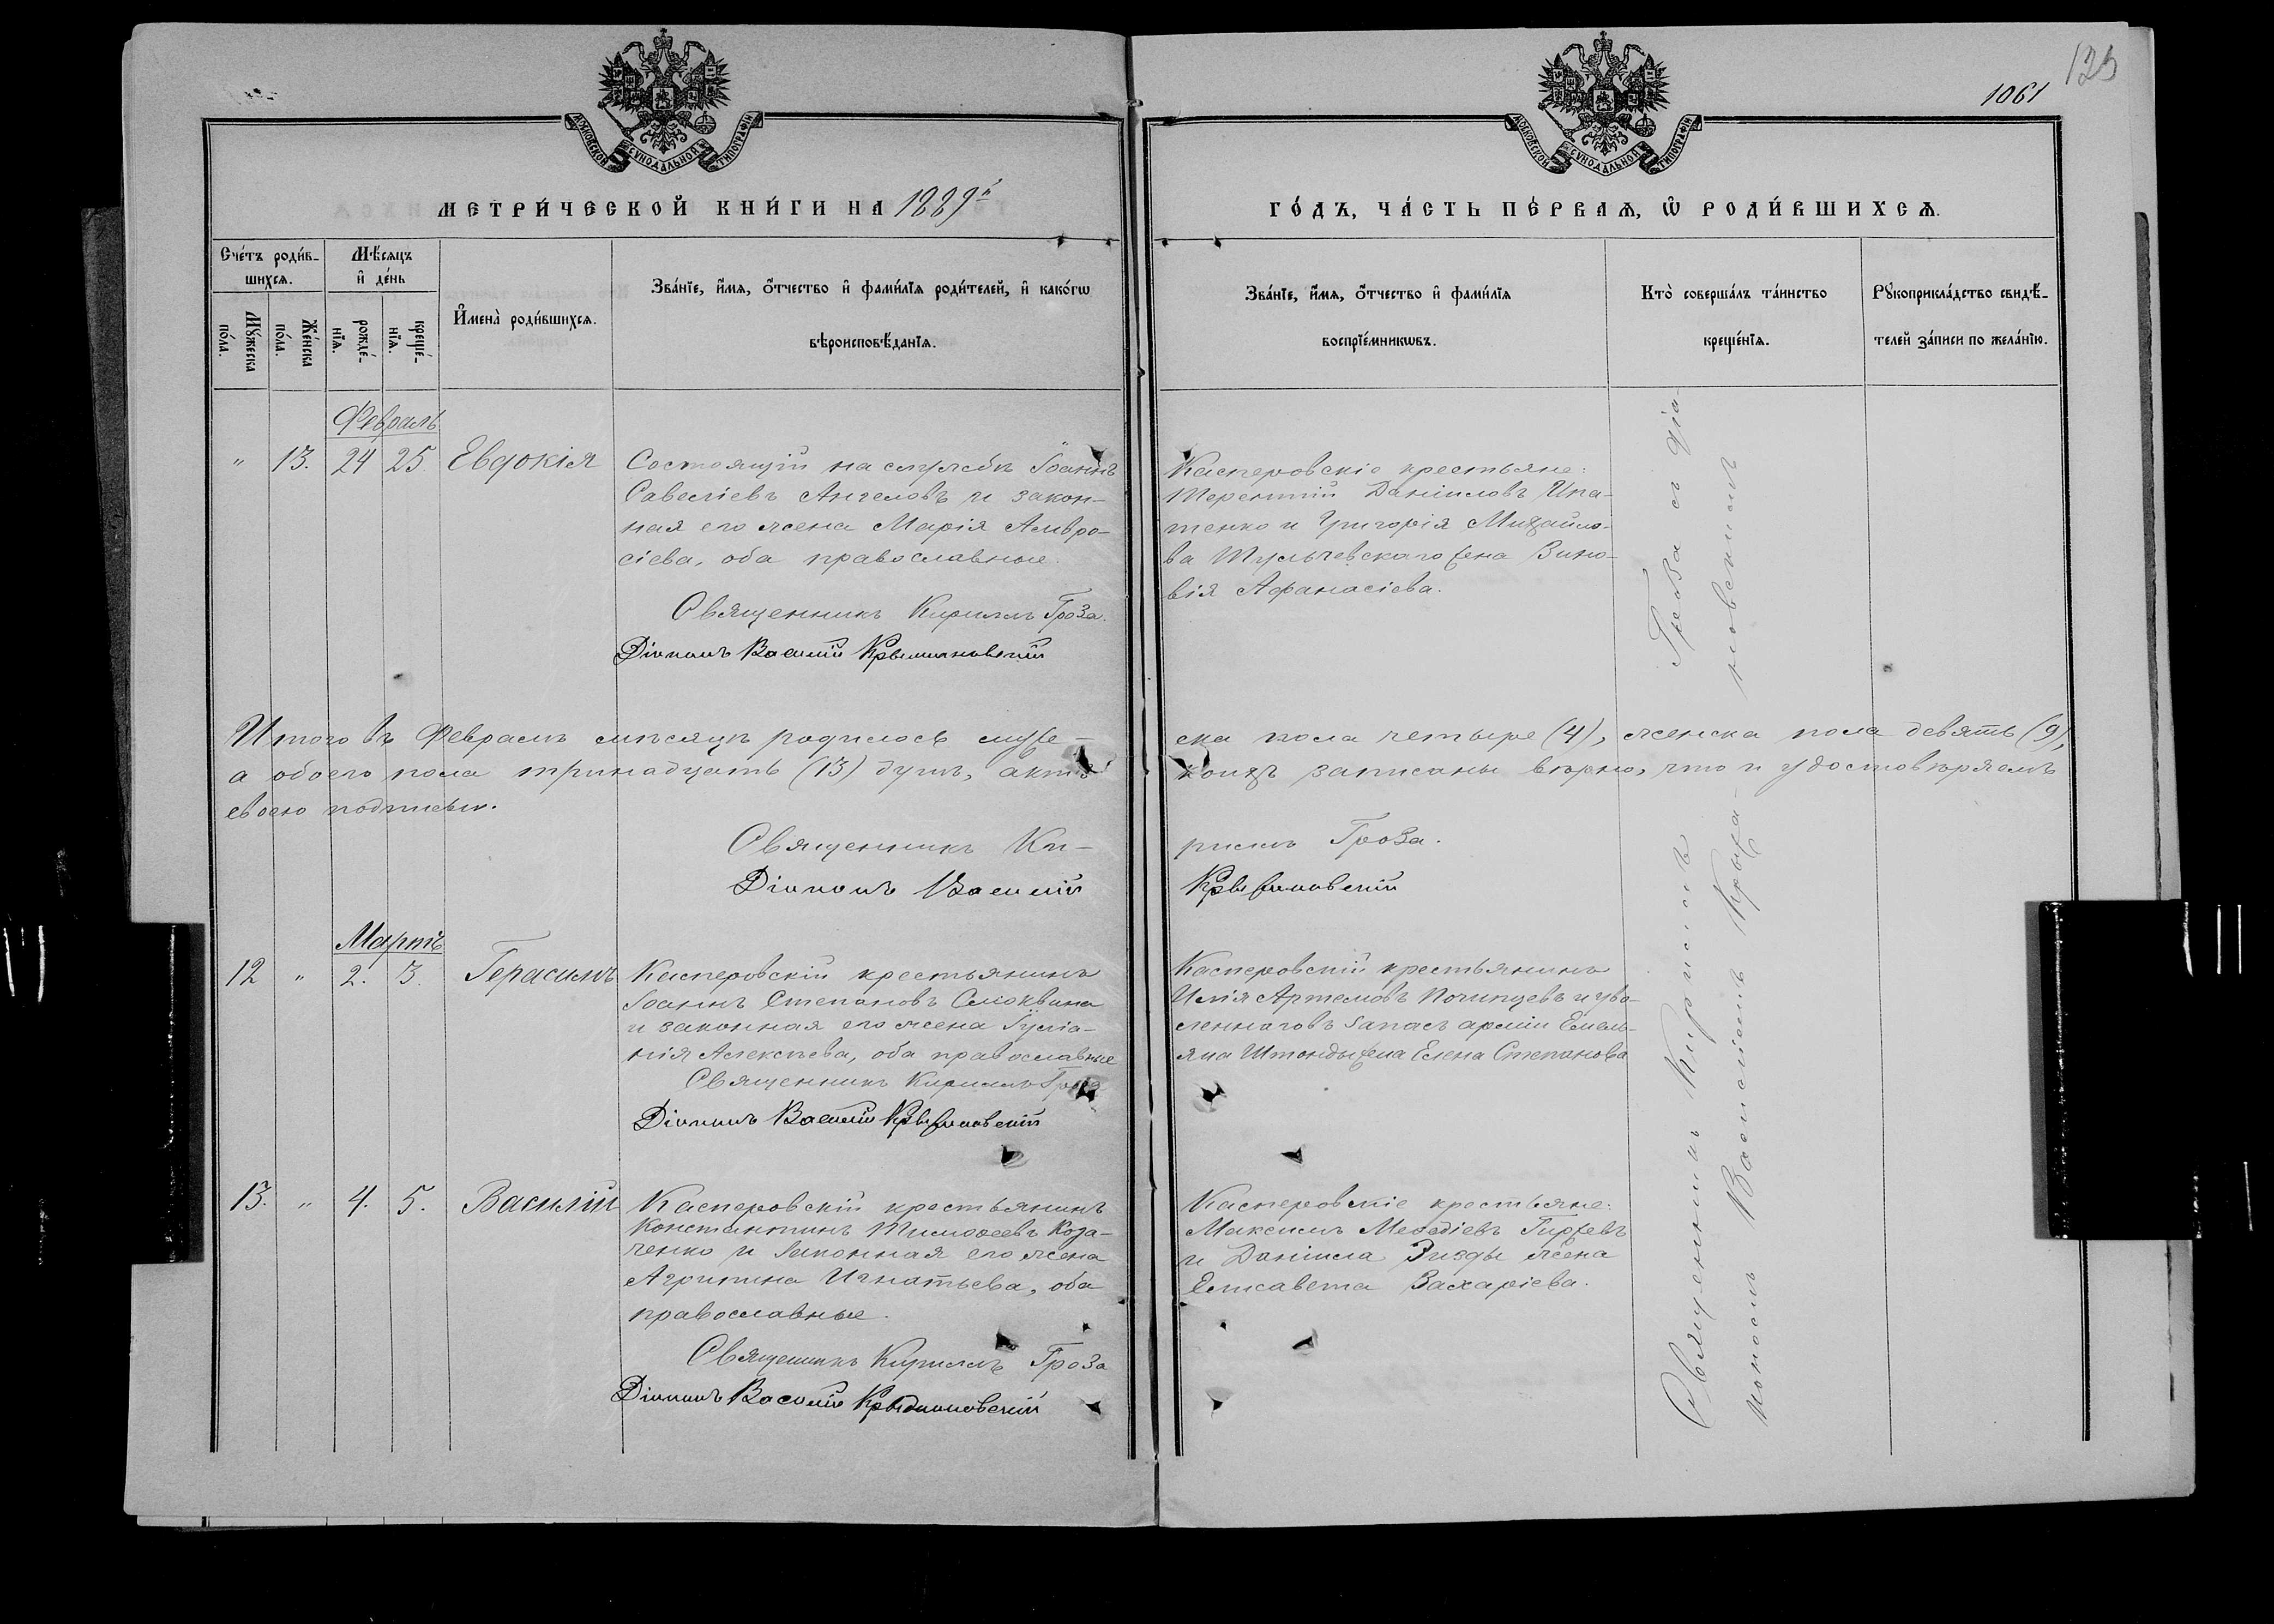 125
1061
МОСКОВСКОЙ СѴНОДАЛЬНОЙ ТИПОГРАФІИ
МОСКОВСКОЙ СѴНОДАЛЬНОЙ ТИПОГРАФІИ
МЕТРИ́ЧЕСКОЙ КНИ́ГИ НА 1889й
ГО́ДЪ, ЧА́СТЬ ПЕ́РВАѦ, Ѡ҆ РОДИ́ВШИХСѦ.
Сче́тъ роди́в-
шихсѧ.
Мѣ́сѧцъ
и҆ де́нь
Мꙋ́жеска
по́ла.
Же́нска
по́ла.
рожде́-
нїѧ.
креще́-
нїѧ.
И҆мена̀ роди́вшихсѧ.
Зва́нїе, и҆́мѧ, ѻ҆́тчество и҆ фами́лїѧ роди́телей, и҆ како́гѡ
вѣроисповѣ́данїѧ.
Зва́нїе, и҆́мѧ, ѻ҆́тчество и҆ фами́лїѧ
воспрїе́мникѡвъ.
Кто̀ соверша́лъ та́инство
креще́нїѧ.
Рꙋкоприкла́дство свидѣ́-
телей за́писи по жела́нїю.
Февраль
" 13. 24 25. Евдокія
Состоящій на службѣ Іоаннъ
Савеліевъ Ангеловъ и закон-
ная его жена Марія Амвро-
сіева, оба православные.
Священникъ Кириллъ Гроза.
Діаконъ Василій
Касперовскіе крестьяне:
Терентій Даниловъ Ипа-
тенко и Григорія Михайло-
ва Тульчевскаго жена Зино-
вія Афанасіева.
Итого въ Февралѣ мѣсяцѣ родилось муже-
ска пола четыре (4), женска пола девять (9),
а обоего пола тринадцать (13) душъ, актъ
коихъ записаны вѣрно, что и удостовѣряемъ
своею подписью.
Священникъ Ки-
риллъ Гроза.
Діаконъ Василій
Мартъ
12 " 2. 3. Герасимъ
Касперовскій крестьянинъ
Іоаннъ Степановъ Смоквина
и законная его жена Іуліа-
нія Алексѣева, оба православные
Священникъ Кириллъ Гроза
Діаконъ Василій
Касперовскій крестьянинъ
Илія Артемовъ Починцевъ и ува-
леннаго въ запасъ арміи Емель-
яна Штонды жена Елена Степанова
13. " 4. 5. Василій
Касперовскій крестьянинъ
Константинъ Тимоѳеевъ Коза-
ченко и законная его жена
Агрипина Игнатьева, оба
православные.
Священникъ Кириллъ Гроза
Діаконъ Василій
Касперовскіе крестьяне:
Максимъ Меѳодіевъ Гиржевъ
и Даніила Гнзды жена
Елисавета Захаріева.
Священникъ Кириллъ Гроза съ діа-
кономъ Василіемъ